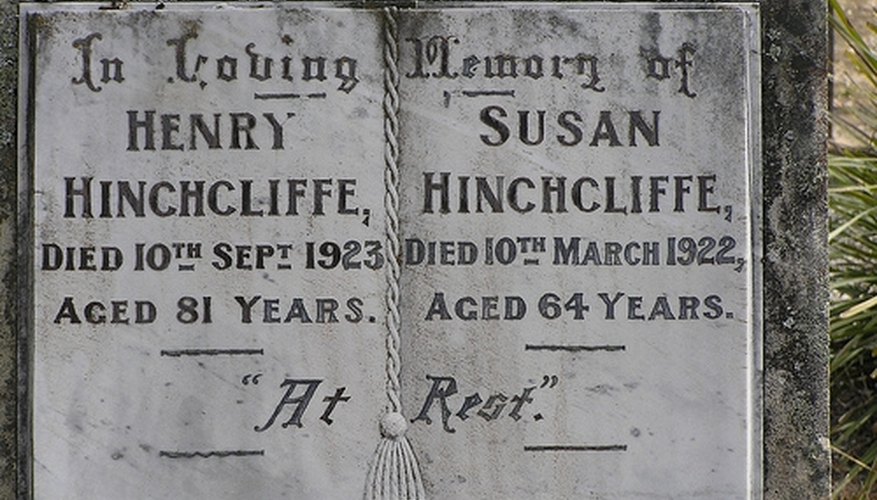 In Loving Memory of
HENRY
HINCHCLIFFE,
DIED 10TH SEPT 1923
AGED 81 YEARS.
SUSAN
HINCHCLIFFE,
DIED 10TH MARCH 1922,
AGED 64 YEARS.
"At Rest."